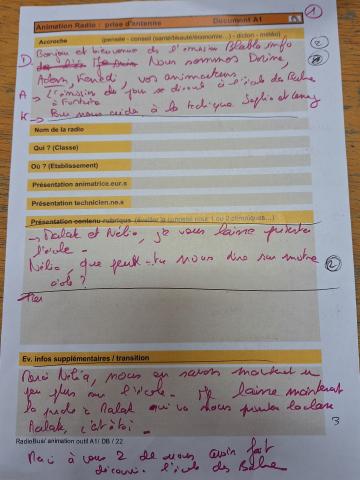 1
Animation Radio : prise d'antenne Document A1
Accroche (pensée - conseil (santé/beauté/économie...) - dicton - météo)
Bonjour et bienvenue dans l'émission Blabla info
D. Nous sommes Dorine,
2
Adam, Kenedi, vos animateurs.
A → L'émission du jour se déroule à l'école de
à
K → Pour nous aider à la technique Sophia et
Nom de la radio
Qui ? (Classe)
Où ? (Etablissement)
Présentation animatrice.eur.s
Présentation technicien.ne.s
Présentation contenu rubrique (éveiller la curiosité pour 1 ou 2 chroniques...)
→ Malak et Nélia, je vous laisse présenter
l'école.
Nélia, que peux-tu nous dire sur notre
école ?
2
Mer
Ev. infos supplémentaires / transition
Merci Nélia, nous en savons maintenant un
peu plus sur l'école. Je laisse maintenant
la parole à Malak qui va nous présenter la classe
Malak, c'est à toi.
3
RadioBus/ animation outil A1/ DB / 22
Merci à vous 2 de nous avoir fait
découvrir l'école des